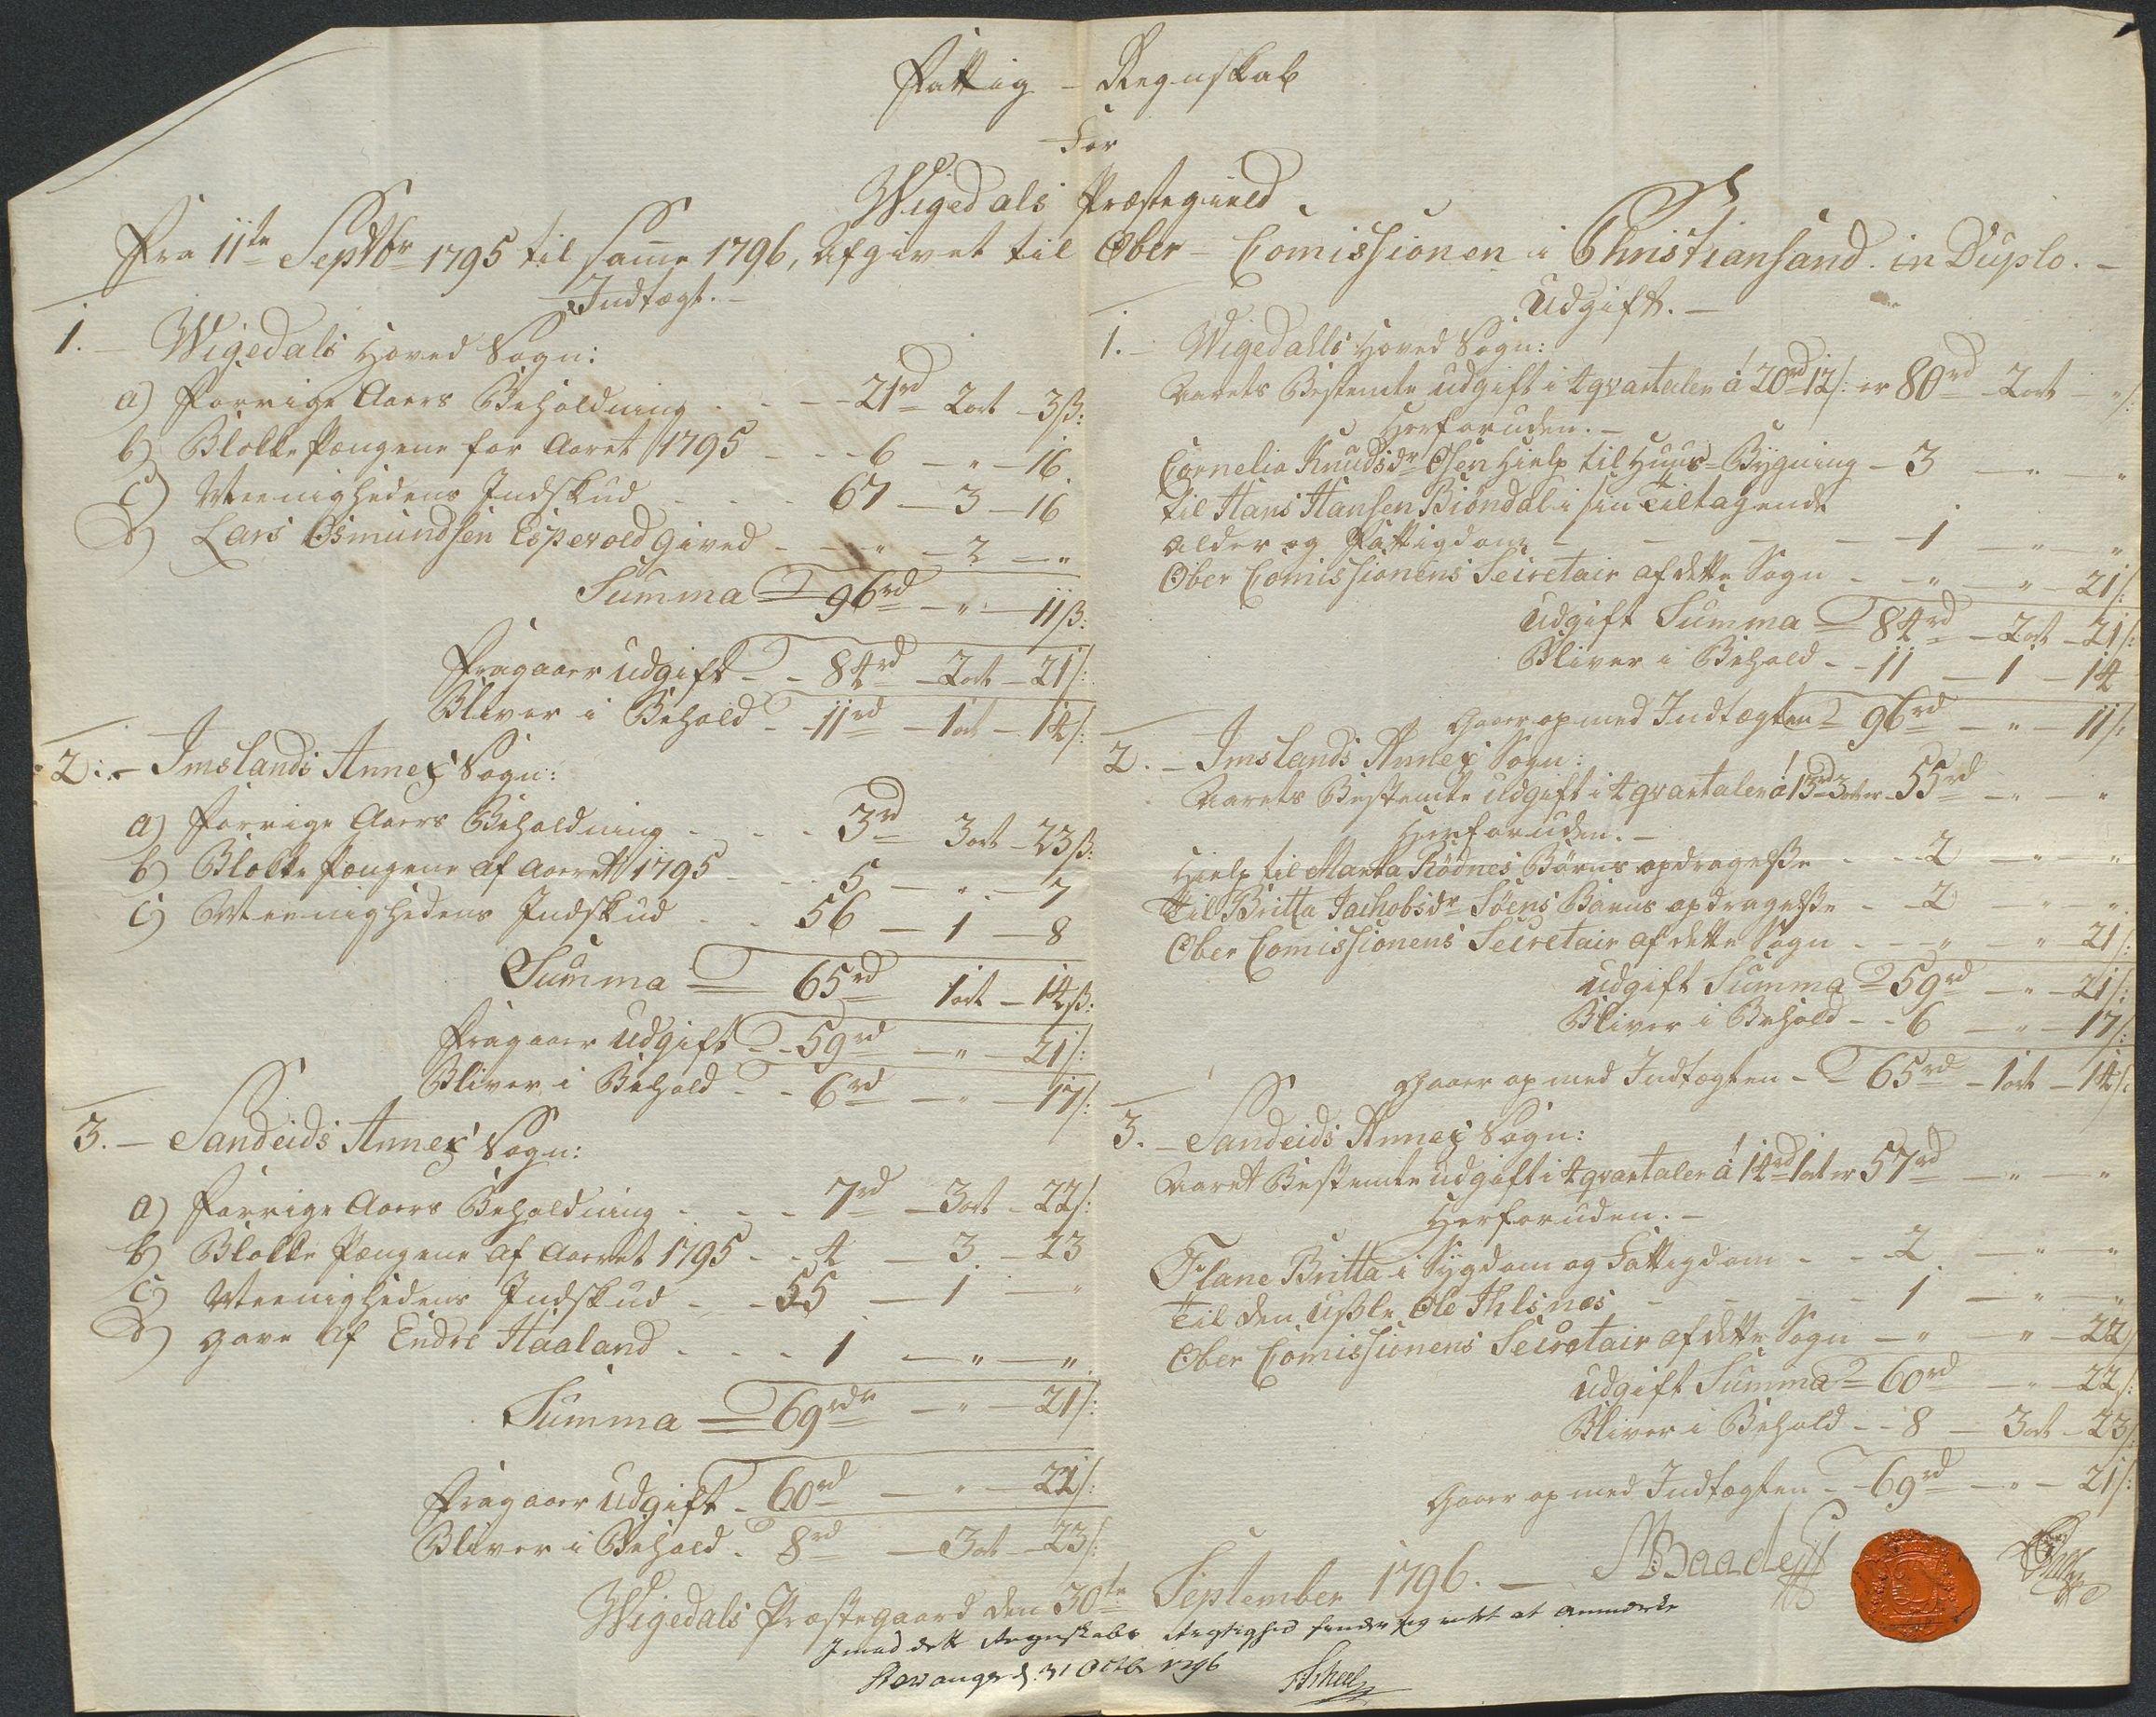 Fattig - Regnskab
For
Wigedals Præstegield
Fra 11te Septbr 1795 til samme 1796, afgivet til Ober-Comissionen i Christiansand in Duplo.-
Indtægt.-
1.- Wigedals Hoved Sogn:
a) Forrige Aars Beholdning - - - 21rd 2ort - 3ß:
b) Blokke Pengene for Aaret 1795 - - - 6 - " - 16
c) Meenighedens Indskud - - - 67 - 3 - 16
d) Lars Osmundsen Espevold gived - - - " - 2 - "
Summa = 96rd - " - 11ß:
Fragaaer Udgift - - 84rd - 2ort - 21ß:
Bliver i Behold - - 11rd - 1ort - 14ß:
2.- Imslands Annex Sogn:
a) Forrige Aars Beholdning - - - 3rd 3ort - 23ß:
b) Blokke Pengene af Aaret 1795 - - - 5 - " - 7
c) Meenighedens Indskud - - 56 - 1 - 8
Summa = 65rd 1ort - 14ß:
Fragaaer Udgift - - 59rd - " - 21ß:
Bliver i Behold - - 6rd - " - 17ß:
3.- Sandeids Annex Sogn:
a) Forrige Aars Beholdning - - - 7rd - 3ort - 22ß:
b) Blokke Pengene af Aaret 1795 - - 4 - 3 - 23
c) Meenighedens Indskud - - 55 - 1 - "
d) Gave af Endre Haaland - - - 1 - " - "
Summa = 69rdr - " - 21ß:
Fragaaer Udgift - 60rd - " - 22ß:
Bliver i Behold - 8rd - 3ort - 23ß:
Udgift.-
1.- Wigedalls Hoved Sogn:
Aarets Bestemte Udgift i 4 qvartaler á 20rd 12ß: er 80rd - 2ort - "ß:
Herforuden.-
Cornelia Knudsdr Osen Hielp til Huus-Bygning - 3 - " - "
Til Hans Hansen Biøndal i sin tiltagende
Alder og Fattigdom - - - - - 1 - " - "
Ober Comissionens Secretair af dette Sogn - - " - " - 21ß:
Udgift Summa = 84rd - 2ort - 21ß:
Bliver i Behold - - 11 - 1 - 14
Gaaer op med Indtægten = 96rd - " - 11ß:
2.- Imslands Annex Sogn:
Aarets Bestemte Udgift i 4 qvartaler á 13rd 3ort er 55rd - " - "
Herforuden.-
Hielp til Marta Rødnes Børns opdragelße - - 2 - " - "
Til Britta Jachobsdr Søens Barns opdragelße - - 2 - " - "
Ober Comissionens Secretair af dette Sogn - - " - " 21ß:
Udgift Summa = 59rd - " - 21ß:
Bliver i Behold - - 6 - " - 17ß:
Gaaer op med Indtægten - = 65rd - 1ort - 14ß:
3.- Sandeids Annex Sogn:
Aaret Bestemte Udgift i 4 qvartaler á 14rd 1ort er 57rd - " - "
Herforuden.-
Flane Britta i Sygdom og Fattigdom - - 2 - " - "
Til den Ußle Ole - - - 1 - " - "
Ober Comissionens Secretair af dette Sogn - " - " - 22ß
Udgift Summa = 60rd - " - 22ß:
Bliver i Behold - - 8 - 3ort - 23ß:
Gaaer op med Indtægten - - 69rd - " - 21ß:
Wigedals Præstegaard den 30te September 1796.- Baade
Imod dette Regnskabs Rigtighed finder jeg intet at anmerke
Stavanger d. 31 Octbr 1796 Scheel